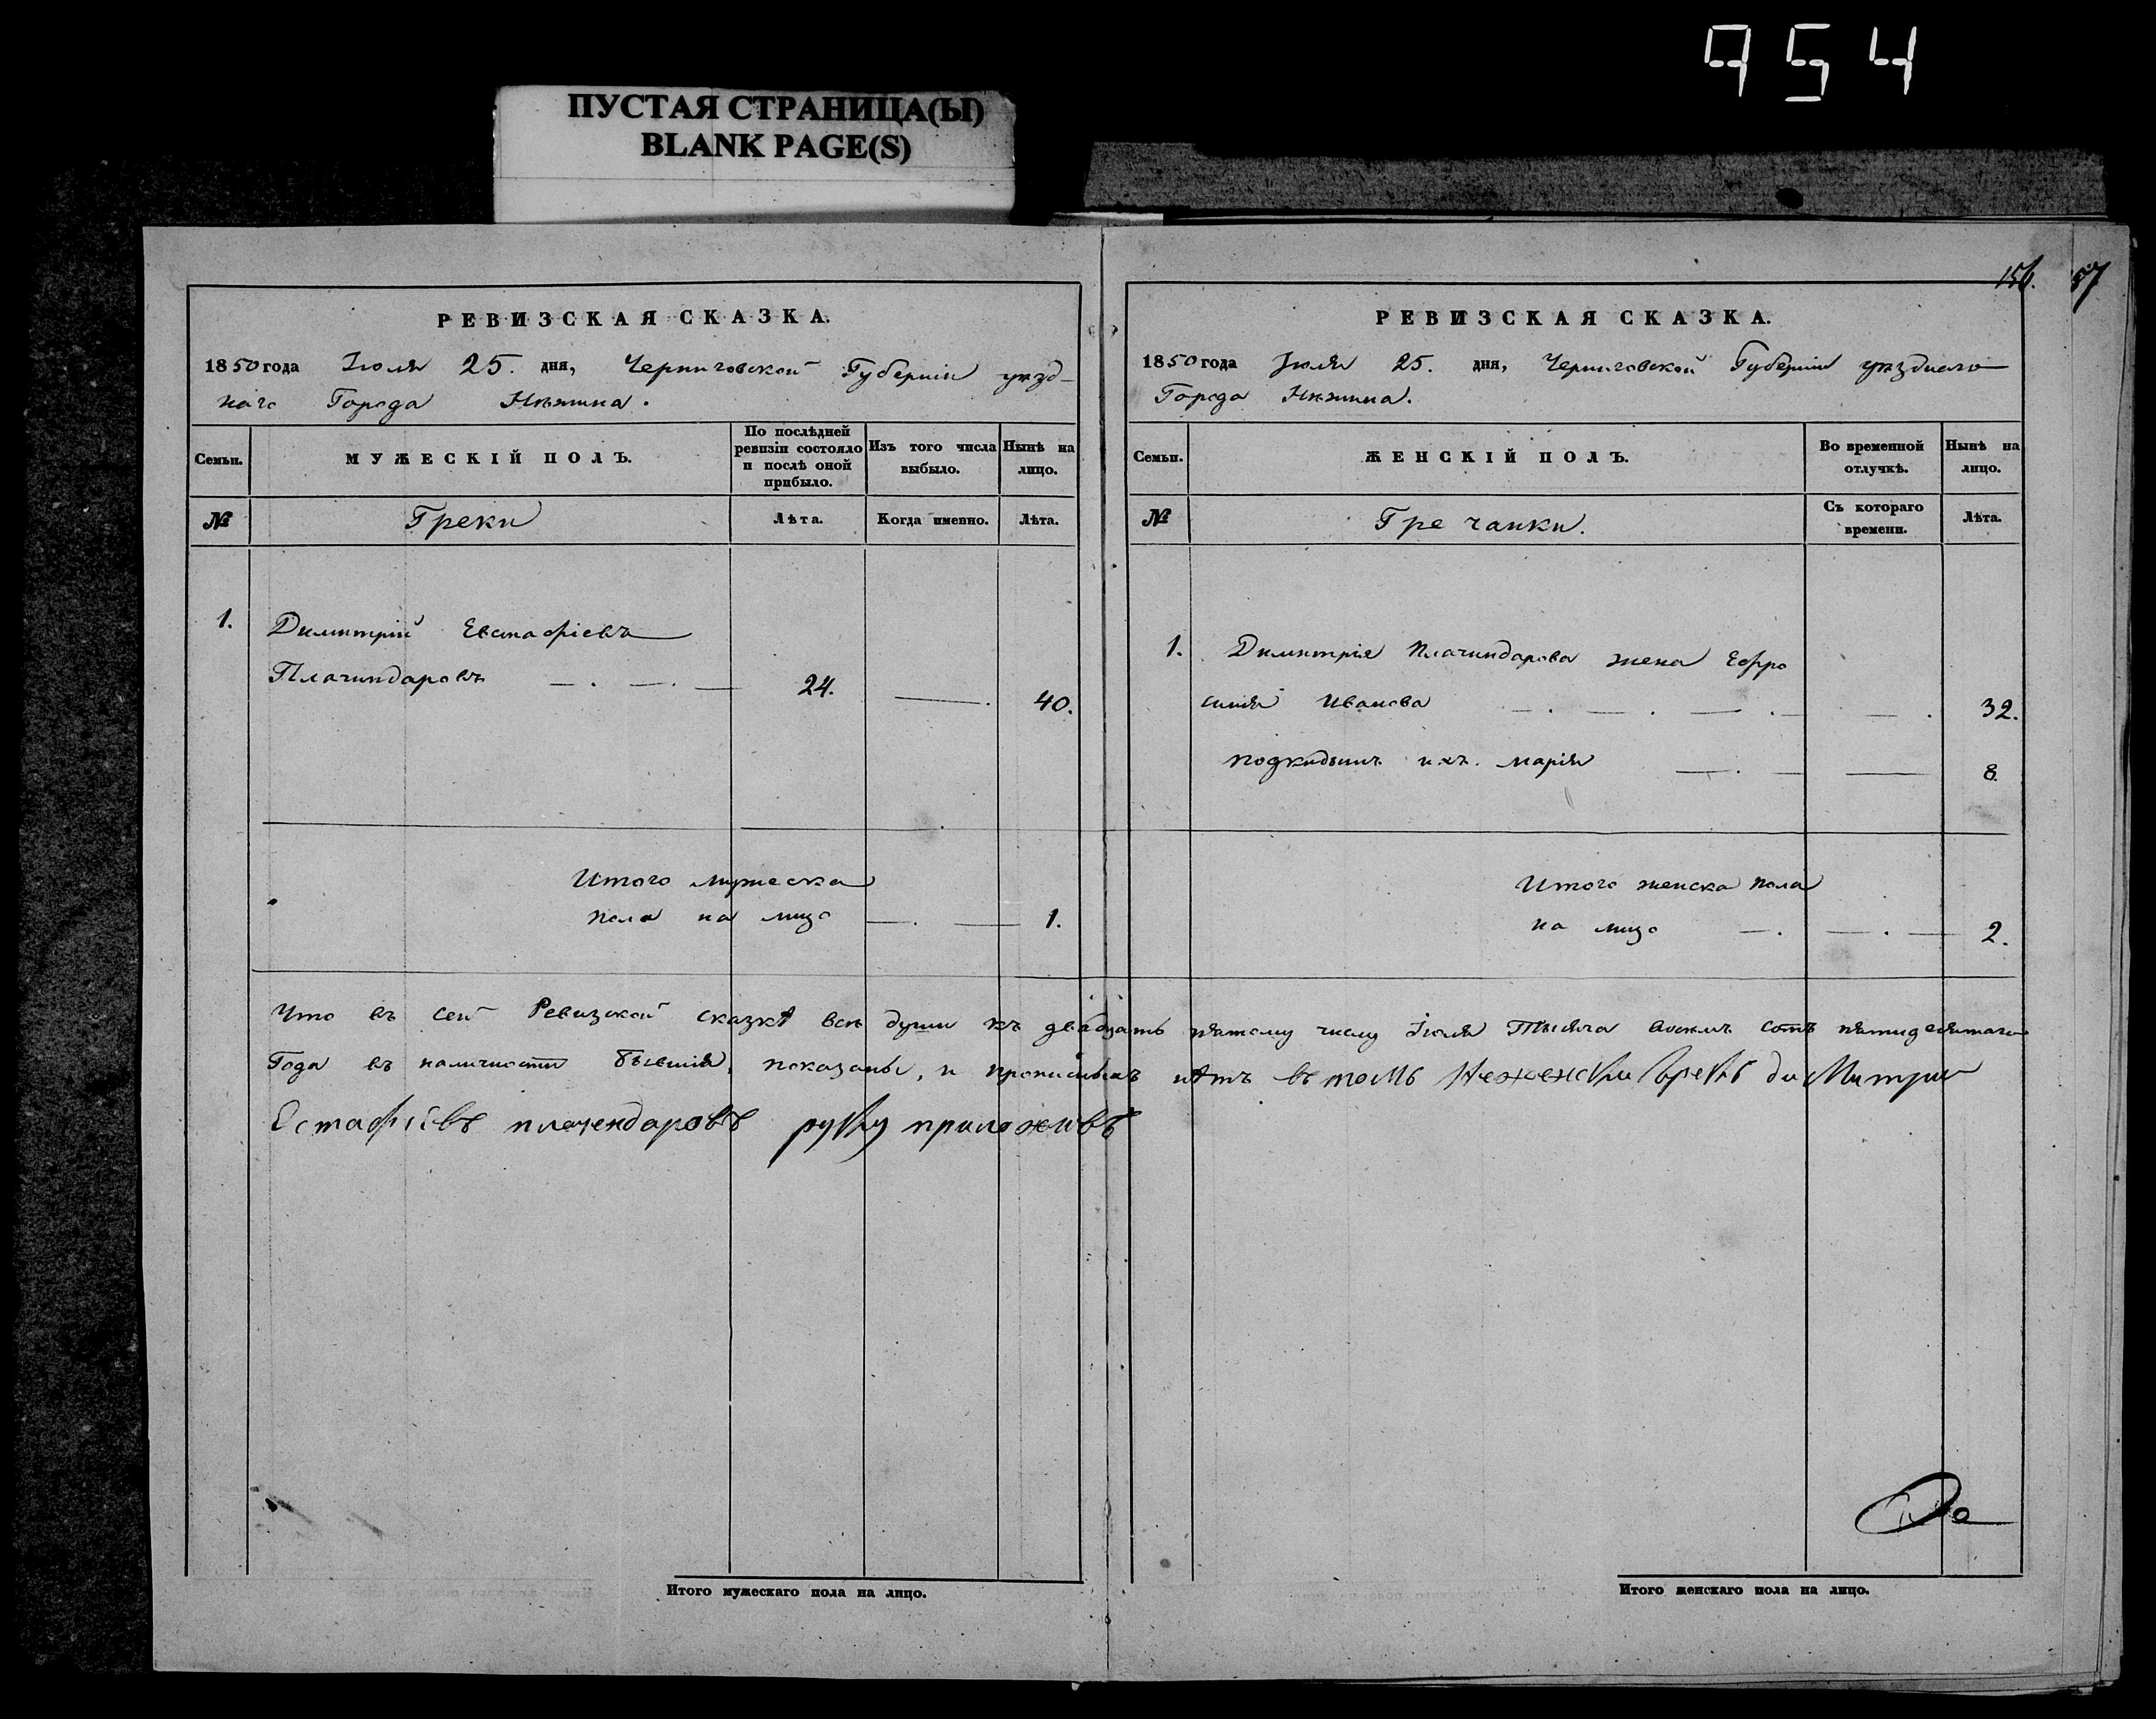 954
ПУСТАЯ СТРАНИЦА(Ы)
BLANK PAGE(S)
РЕВИЗСКАЯ СКАЗКА.
1850 года Іюля 25. дня, Черниговской Губерніи уѣзд-
наго Города Нѣжина.
Семьи.
МУЖЕСКІЙ ПОЛЪ.
По послѣдней ревизіи состояло и послѣ оной прибыло.
Изъ того числа выбыло.
Нынѣ на лицо.
№
Греки
Лѣта.
Когда именно.
Лѣта.
1. Димитрій Евстафіевъ
Плачиндаровъ 24. 40.
Итого мужеска
пола на лицо 1.
156. 57
РЕВИЗСКАЯ СКАЗКА.
1850 года Іюля 25. дня, Черниговской Губерніи уѣзднаго
Города Нѣжина.
Семьи.
ЖЕНСКІЙ ПОЛЪ.
Во временной отлучкѣ.
Нынѣ на лицо.
№
Гречанки.
Съ котораго времени.
Лѣта.
1. Димитрія Плачиндарова жена Ефро
синія Иванова 32.
подкидышъ ихъ Марія 8.
Итого женска пола
на лицо 2.
Что въ сей Ревизской сказкѣ всѣ души къ двадцать пятому числу Іюля Тысяча восемь сотъ пятидесятаго
Года въ наличности бывшія, показаны, и прописныхъ нѣтъ въ томъ Неженски Грекъ диМитри
Естафіевъ плачендаровъ руку приложивъ
Итого мужескаго пола на лицо.
Итого женскаго пола на лицо.